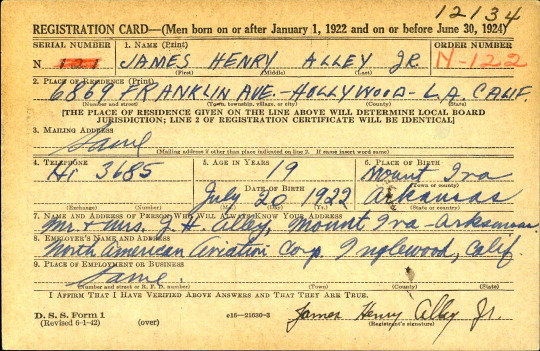 12134
REGISTRATION CARD—(Men born on or after January 1, 1922 and on or before June 30, 1924)
SERIAL NUMBER 1. NAME (Print) ORDER NUMBER
N 121 JAMES HENRY ALLEY JR. N-122
(First) (Middle) (Last)
2. PLACE OF RESIDENCE (Print)
6869 FRANKLIN AVE.-HOLLYWOOD-L.A. CALIF.
(Number and street) (Town, township, village, or city) (County) (State)
[THE PLACE OF RESIDENCE GIVEN ON THE LINE ABOVE WILL DETERMINE LOCAL BOARD
JURISDICTION; LINE 2 OF REGISTRATION CERTIFICATE WILL BE IDENTICAL]
3. MAILING ADDRESS
Same
[Mailing address if other than place indicated on line 2. If same insert word same]
4. TELEPHONE 5. AGE IN YEARS 6. PLACE OF BIRTH
Hi 3685 19 Mount Ida
DATE OF BIRTH (Town or county)
July 20 1922 Arkansas
(Exchange) (Number) (Mo.) (Day) (Yr.) (State or country)
7. NAME AND ADDRESS OF PERSON WHO WILL ALWAYS KNOW YOUR ADDRESS
Mr. & Mrs. J. H. Alley, Mount Ida-Arkansas
8. EMPLOYER'S NAME AND ADDRESS
North American Aviation Corp. Inglewood, Calif.
9. PLACE OF EMPLOYMENT OR BUSINESS
Same
(Number and street or R. F. D. number) (Town) (County) (State)
I AFFIRM THAT I HAVE VERIFIED ABOVE ANSWERS AND THAT THEY ARE TRUE.
D. S. S. Form 1
(Revised 6-1-42) (over) c16—21630-2 James Henry Alley Jr.
(Registrant's signature)